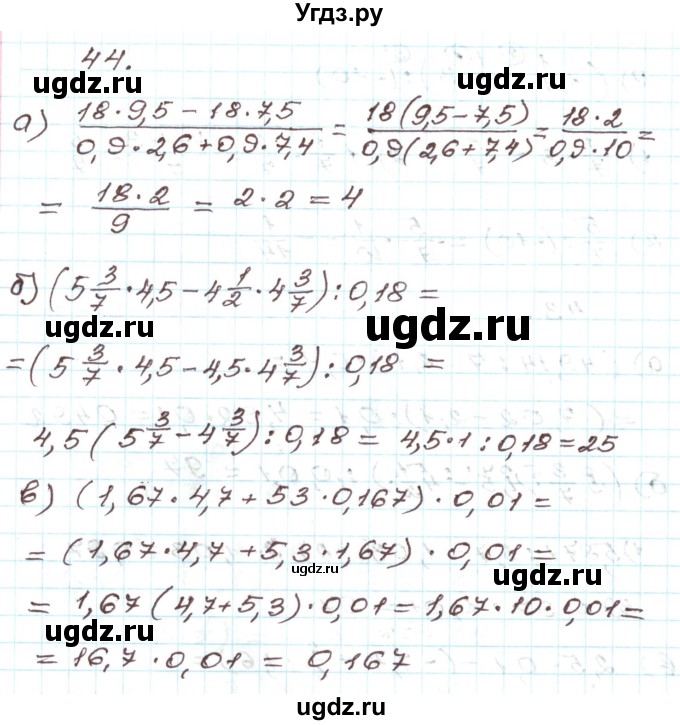 Угдз.ру
44.
ugdz.ru
ugdz.ru
а) (18·9,5 − 18·7,5)/(0,9·2,6+0,9·7,4) = 18(9,5−7,5)/0,9(2,6+7,4) = 18·2/0,9·10 =
= 18·2/9 = 2·2 = 4
б) (5 3/7 · 4,5 − 4 1/2 · 4 3/7) : 0,18 =
ugdz.ru
ugdz.ru
= (5 3/7 · 4,5 − 4,5 · 4 3/7) : 0,18 =
4,5 (5 3/7 − 4 3/7) : 0,18 = 4,5·1 : 0,18 = 25
ugdz.ru
ugdz.ru
в) (1,67·4,7 + 53·0,167) · 0,01 =
= (1,67·4,7 + 5,3·1,67) · 0,01 =
ugdz.ru
ugdz.ru
= 1,67 (4,7+5,3)·0,01 = 1,67·10·0,01 =
ugdz.ru
= 16,7 · 0,01 = 0,167
ugdz.ru
ugdz.ru